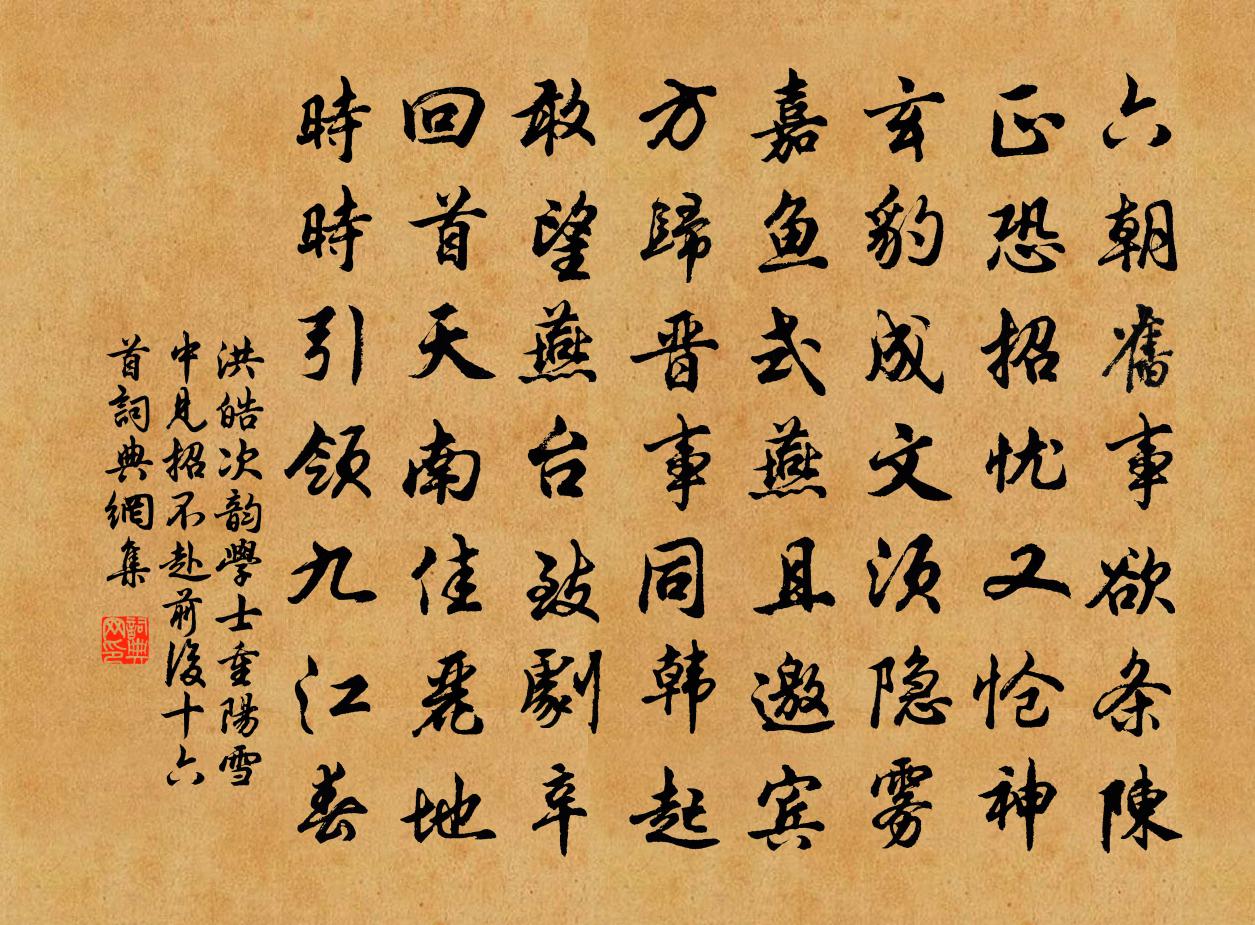 六朝舊事欲条陳
正恐招忧又怆神
玄豹成文须隐雾
嘉鱼式燕且邀宾
方歸晋事同韩起
敢望燕台致劇辛
回首天南佳麗地
時時引领九江春
洪皓次韵學士重陽雪
中見招不赴前後十六
首詞典網集
詞典网印